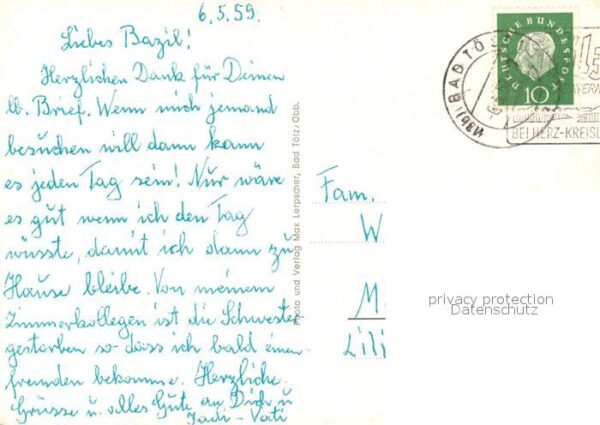 6.5.59.
Liebes Bazil!
Herzlichen Dank für Deinen
lb. Brief. Wenn mich jemand
besuchen will dann kann
es jeden Tag sein! Nur wäre
es gut wenn ich den Tag
wüsste, damit ich dann zu
Hause bleibe. Von meinem
Zimmerkollegen ist die Schwester
gestorben so dass ich bald einen
fremden bekomme. Herzliche
Grüsse u. alles Gute an Dich u
Jadi - Vati
Photo und Verlag Max Lerpscher, Bad Tölz/Obb.
DEUTSCHE BUNDESPOST
10
(13b) BAD TÖ
BAYERN
BEI HERZ-KREISL
Fam.
W
M
Lili
privacy protection
Datenschutz